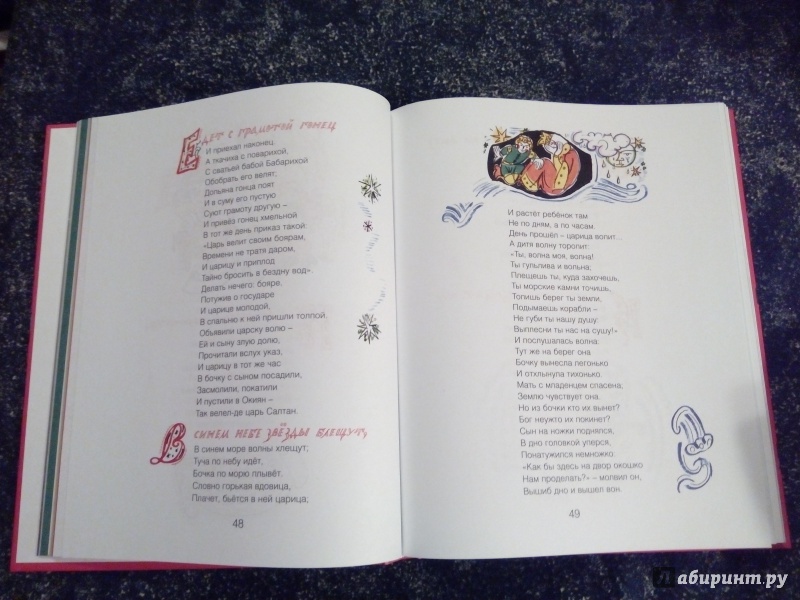 Едет с грамотой гонец
И приехал наконец.
А ткачиха с поварихой,
С сватьей бабой Бабарихой
Обобрать его велят;
Допьяна гонца поят
И в суму его пустую
Суют грамоту другую –
И привёз гонец хмельной
В тот же день приказ такой:
«Царь велит своим боярам,
Времени не тратя даром,
И царицу и приплод
Тайно бросить в бездну вод».
Делать нечего: бояре,
Потужив о государе
И царице молодой,
В спальню к ней пришли толпой.
Объявили царску волю –
Ей и сыну злую долю,
Прочитали вслух указ,
И царицу в тот же час
В бочку с сыном посадили,
Засмолили, покатили
И пустили в Окиян –
Так велел-де царь Салтан.
В синем небе звёзды блещут,
В синем море волны хлещут;
Туча по небу идёт,
Бочка по морю плывёт.
Словно горькая вдовица,
Плачет, бьётся в ней царица;
48
И растёт ребёнок там
Не по дням, а по часам.
День прошёл – царица вопит...
А дитя волну торопит:
«Ты, волна моя, волна!
Ты гульлива и вольна;
Плещешь ты, куда захочешь,
Ты морские камни точишь,
Топишь берег ты земли,
Подымаешь корабли –
Не губи ты нашу душу:
Выплесни ты нас на сушу!»
И послушалась волна:
Тут же на берег она
Бочку вынесла легонько
И отхлынула тихонько.
Мать с младенцем спасена;
Землю чувствует она.
Но из бочки кто их вынет?
Бог неужто их покинет?
Сын на ножки поднялся,
В дно головкой уперся,
Понатужился немножко:
«Как бы здесь на двор окошко
Нам проделать?» – молвил он,
Вышиб дно и вышел вон.
49
Лабиринт.ру